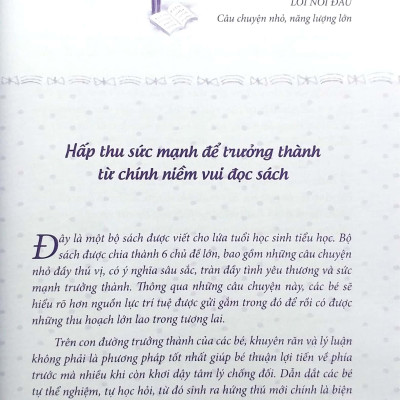 LỜI NÓI ĐẦU
Câu chuyện nhỏ, năng lượng lớn
Hấp thu sức mạnh để trưởng thành
từ chính niềm vui đọc sách
Đây là một bộ sách được viết cho lứa tuổi học sinh tiểu học. Bộ
sách được chia thành 6 chủ đề lớn, bao gồm những câu chuyện
nhỏ đầy thú vị, có ý nghĩa sâu sắc, tràn đầy tình yêu thương và sức
mạnh trưởng thành. Thông qua những câu chuyện này, các bé sẽ
hiểu rõ hơn nguồn lực trí tuệ được gửi gắm trong đó để rồi có được
những thu hoạch lớn lao trong tương lai.
Trên con đường trưởng thành của các bé, khuyên răn và lý luận
không phải là phương pháp tốt nhất giúp bé thuận lợi tiến về phía
trước mà nhiều khi còn khơi dậy tâm lý chống đối. Dẫn dắt các bé
tự thể nghiệm, tự học hỏi, từ đó sinh ra hứng thú mới chính là biện